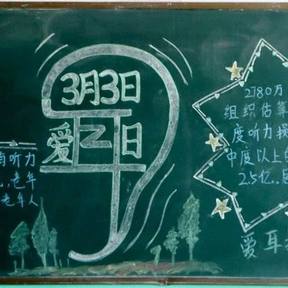 3月3日
爱耳日
听力
老年
老年人
2780万
组织估算
度听力损
中度以上的
2.5亿。
爱耳